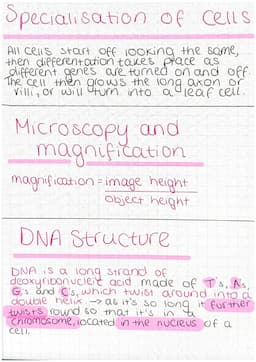 Specialisation of Cells
All cells start off looking the same,
then differentation takes place as
different genes are turned on and off.
The cell then grows the long axon or
villi, or will turn into a leaf cell.
Microscopy and
magnification
magnification = image height
object height
DNA Structure
DNA is a long strand of
deoxyribonucleic acid made of T's, A's,
G's and C's, which twist around into a
double helix → as it's so long it further
twists round so that it's in a
chromosome, located in the nucleus of a
cell.